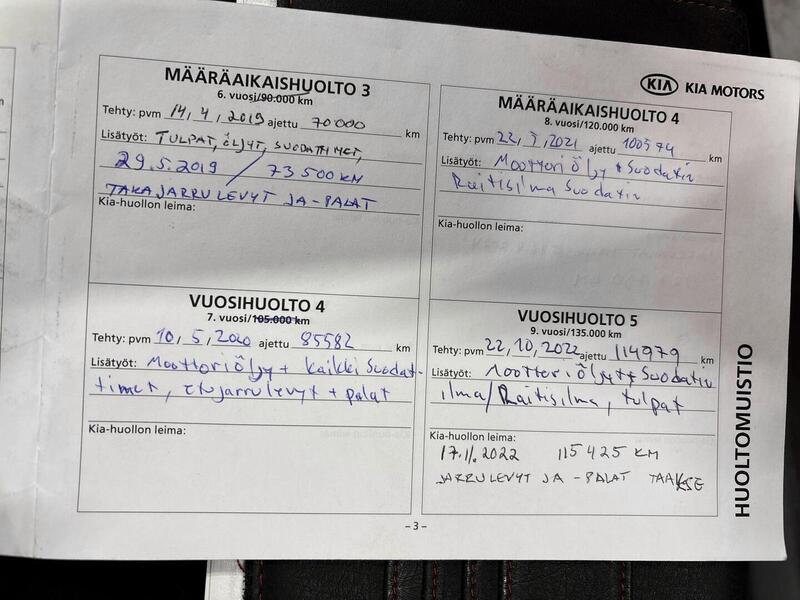 KIA KIA MOTORS
MÄÄRÄAIKAISHUOLTO 3
6. vuosi/90.000 km
Tehty: pvm 14, 4, 2019 ajettu 70000 km
Lisätyöt: TULPAT, ÖLJYT, SUODATTIMET,
29.5.2019 / 73 500 KM
TAKAJARRULEVYT JA -PALAT
Kia-huollon leima:
MÄÄRÄAIKAISHUOLTO 4
8. vuosi/120.000 km
Tehty: pvm 22, 2021 ajettu 100594 km
Lisätyöt: Moottoriöljy + Suodatin
Raitisilma Suodatin
Kia-huollon leima:
VUOSIHUOLTO 4
7. vuosi/105.000 km
Tehty: pvm 10, 5, 2020 ajettu 85582 km
Lisätyöt: Moottoriöljy + kaikki Suodat-
timet, etujarrulevyt + palat
Kia-huollon leima:
VUOSIHUOLTO 5
9. vuosi/135.000 km
Tehty: pvm 22, 10, 2022 ajettu 114979 km
Lisätyöt: Moottoriöljyt + Suodatin
ilma/Raitisilma, tulpat
Kia-huollon leima:
17.11.2022 115425 KM
JARRULEVYT JA -PALAT TAAKSE
HUOLTOMUISTIO
– 3 –